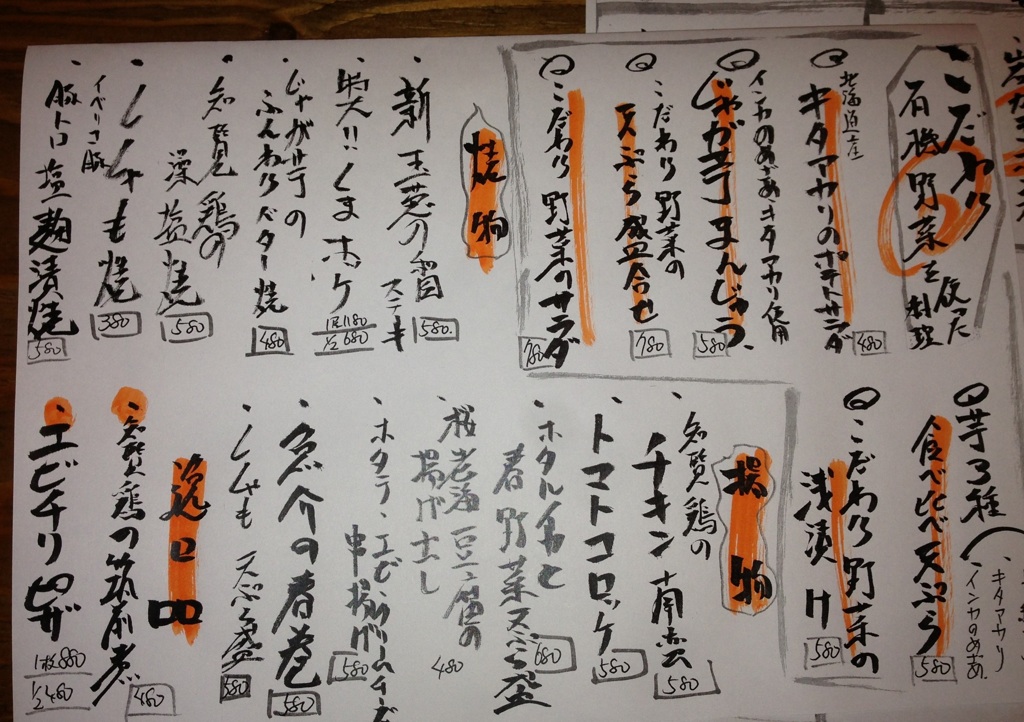 こだわり
有機野菜を使った
料理
北海道産
キタアカリのポテトサラダ
480
インカのめざめ・キタアカリ使用
じゃが芋まんじゅう
580
こだわり野菜の
天ぷら盛合せ
780
こだわり野菜のサラダ
780
焼物
新玉葱の
ステーキ
580
くまホッケ
1尾1180
1/2 680
じゃが芋の
ふんわりバター焼
480
知覧鶏の
藻塩焼
580
ししゃも焼
380
イベリコ豚
豚トロ塩麹漬焼
580
芋3種
キタアカリ
インカのめざめ
食べ比べ天ぷら
580
こだわり野菜の
浅漬け
580
揚物
知覧鶏の
チキン南蛮
580
トマトコロッケ
580
ホタルイカと
春野菜天ぷら盛
680
桜海老豆腐の
揚げ出し
480
ホタテ・エビ
串揚げ
580
魚介の春巻
580
ししゃも天ぷら盛
580
逸品
知覧鶏の筑前煮
480
エビチリピザ
1枚880
1/2 480